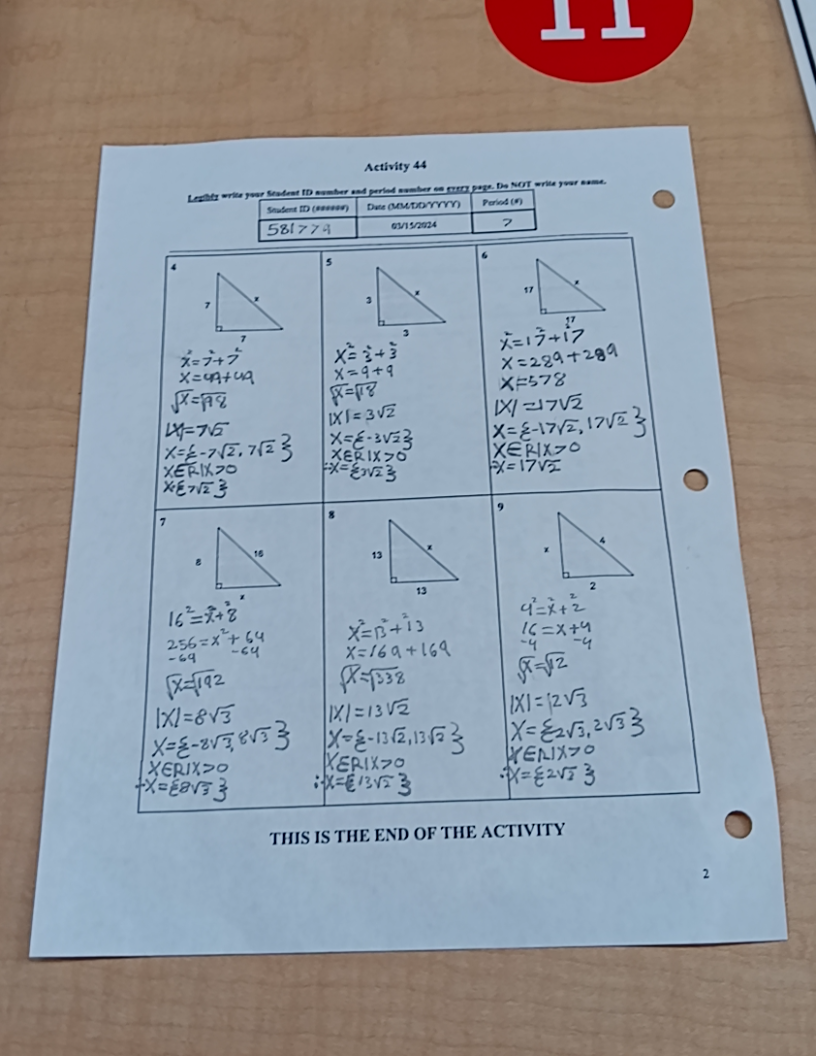 11
Activity 44
Legibly write your Student ID number and period number on every page. Do NOT write your name.
Student ID (######) Date (MM/DD/YYYY) Period (#)
581779 03/15/2024 7
4
7
x
7
x²=7²+7²
x=49+49
√x=√98
|x|=7√2
x={-7√2, 7√2}
x∈R|x>0
x={7√2}
5
3
x
3
x²=3²+3²
x=9+9
√x=√18
|x|=3√2
x={-3√2}
x∈R|x>0
∴x={3√2}
6
17
x
17
x²=17²+17²
x=289+289
x=578
|x|=17√2
x={-17√2, 17√2}
x∈R|x>0
∴x=17√2
7
8
16
x
16²=x²+8²
256=x²+64
-64 -64
√x=√192
|x|=8√3
x={-8√3, 8√3}
x∈R|x>0
∴x={8√3}
8
13
x
13
x²=13²+13²
x=169+169
√x=√338
|x|=13√2
x={-13√2, 13√2}
x∈R|x>0
∴x={13√2}
9
x
4
2
4²=x²+2²
16=x+4
-4 -4
√x=√12
|x|=2√3
x={2√3, 2√3}
x∈R|x>0
∴x={2√3}
THIS IS THE END OF THE ACTIVITY
2